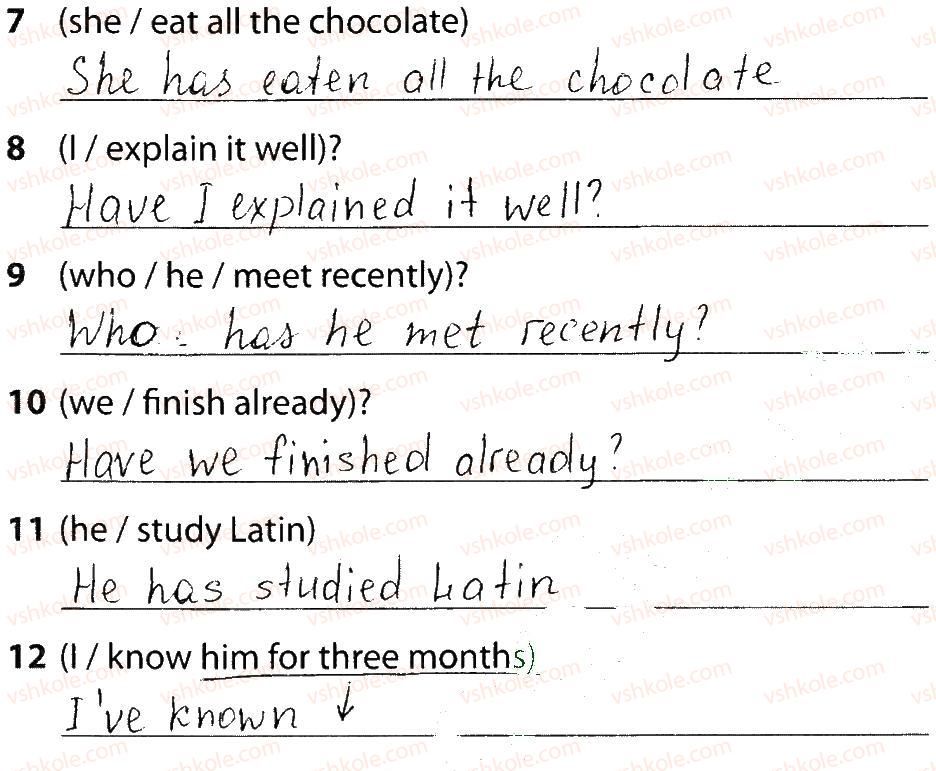 7 (she / eat all the chocolate)
She has eaten all the chocolate
8 (I / explain it well)?
Have I explained it well?
9 (who / he / meet recently)?
Who has he met recently?
10 (we / finish already)?
Have we finished already?
11 (he / study Latin)
He has studied Latin
12 (I / know him for three months)
I've known ↓